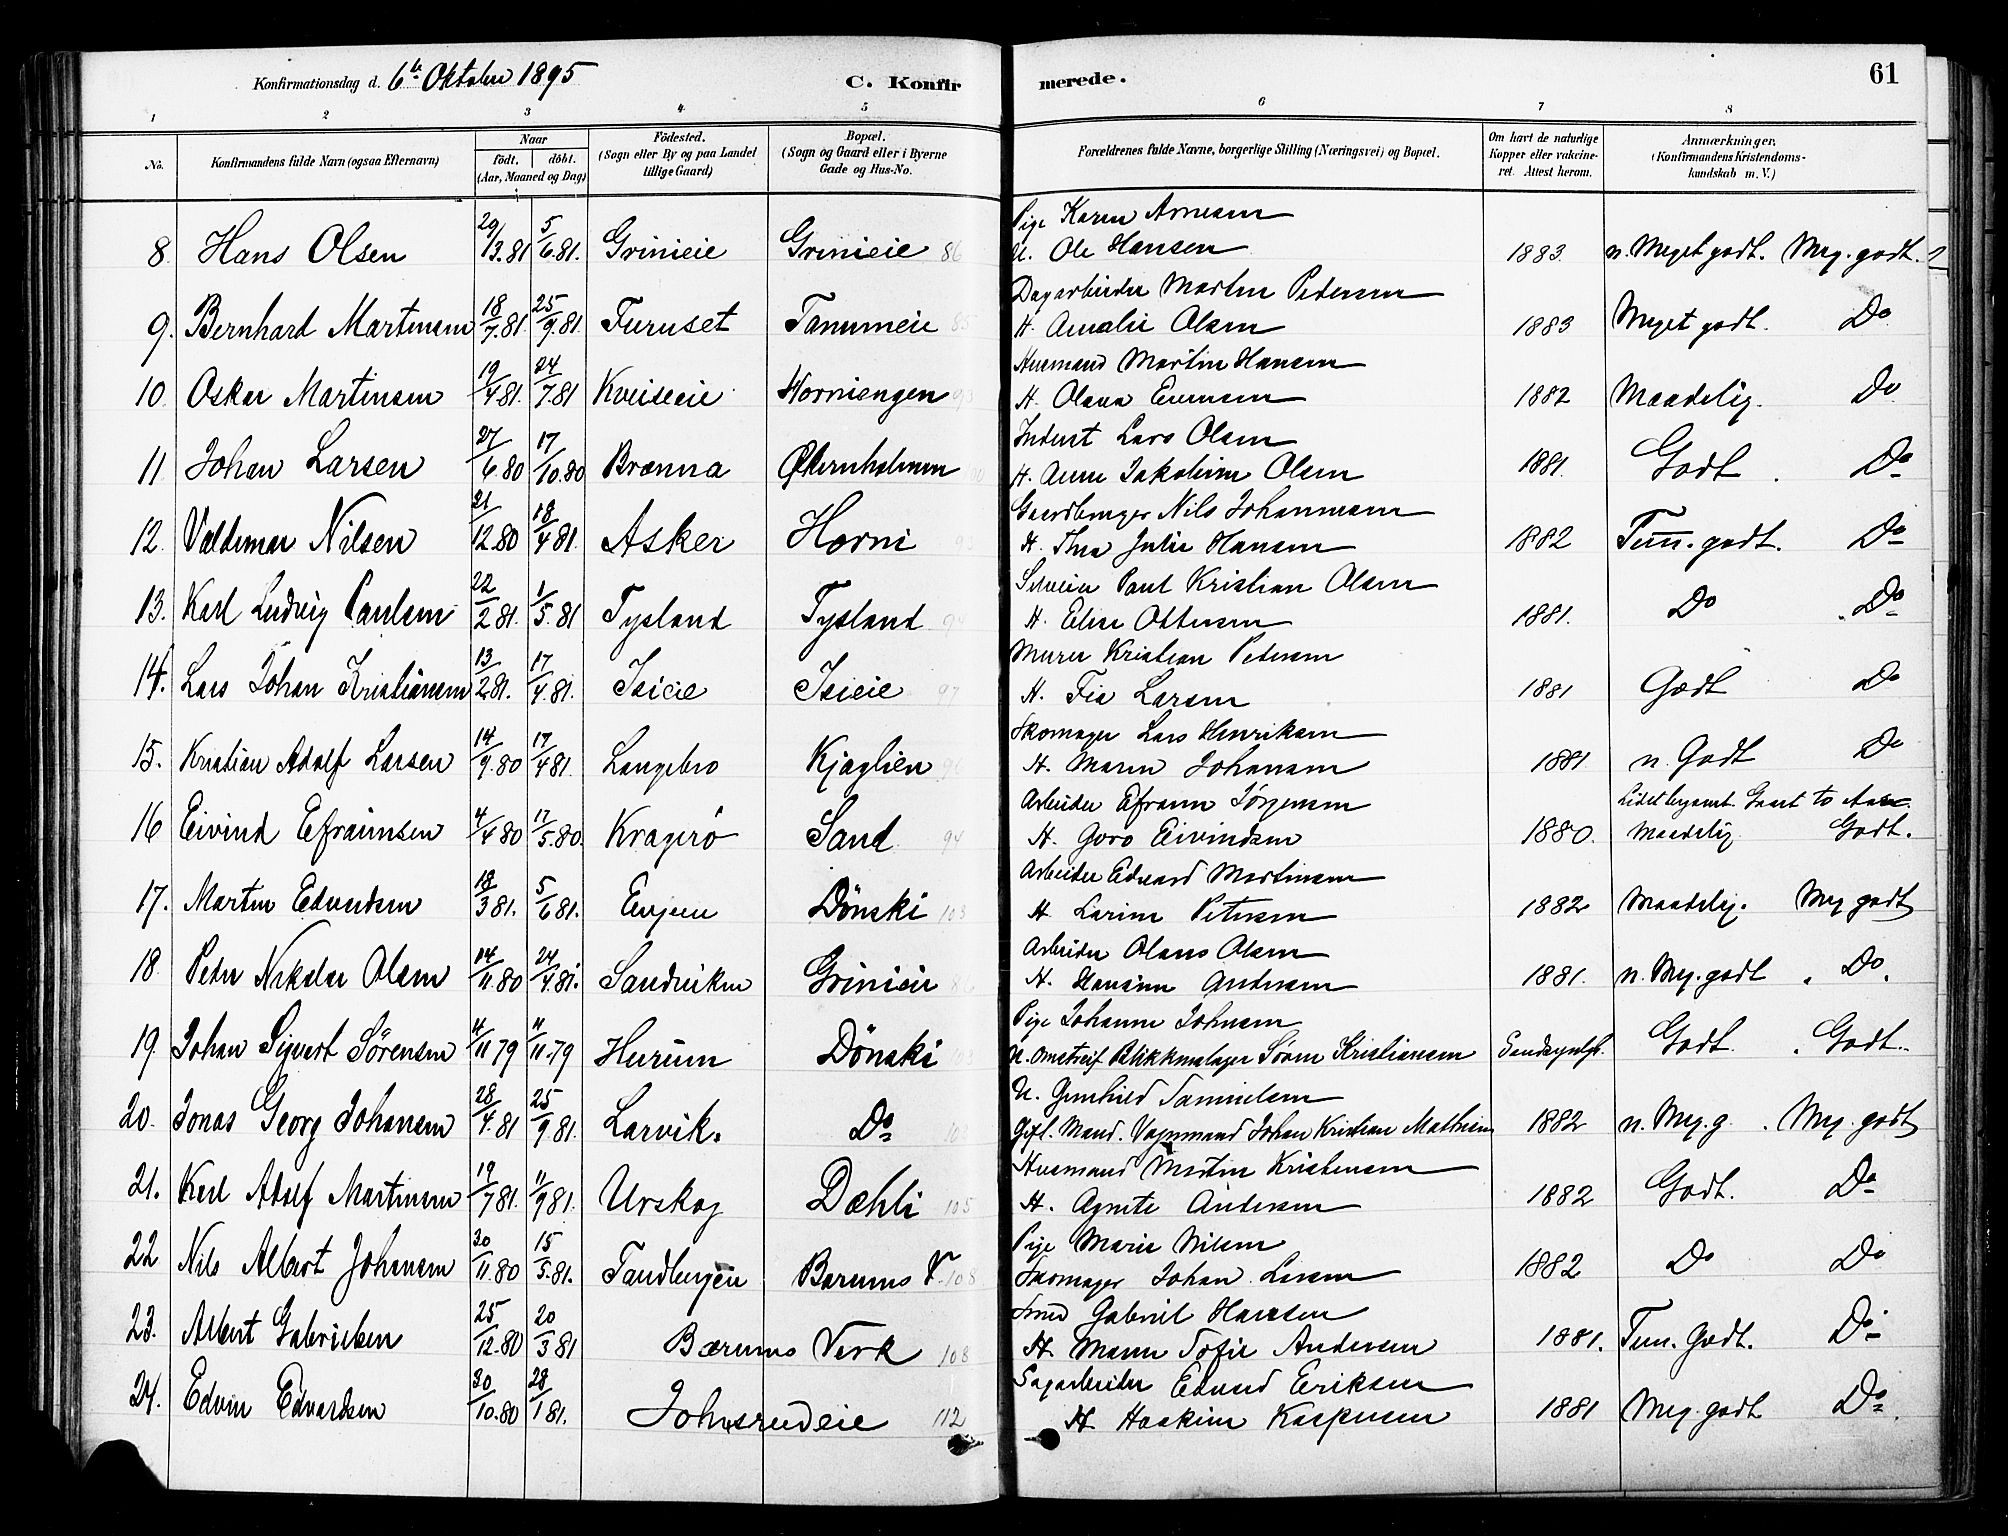 Konfirmationsdag d. 6te Oktober 1895
C. Konfir
merede.
61
1 2 3 4 5 6 7 8
No. Konfirmandens fulde Navn (ogsaa Efternavn) Naar födt. döbt. (Aar, Maaned og Dag) Födested. (Sogn eller By og paa Landet tillige Gaard) Bopæl. (Sogn og Gaard eller i Byerne Gade og Hus-No. Forældrenes fulde Navne, borgerlige Stilling (Næringsvei) og Bopæl. Om havt de naturlige Kopper eller vakcineret. Attest herom. Anmærkninger, (Konfirmandens Kristendomskundskab m. V.)
Pige Karen Arnesen
8. Hans Olsen 29/3.81 5/6.81. Grinieie Grinieie 86 U. Ole Hansen 1883. n. Meget godt. Meg. godt.
Dagarbeider Martin Petersen
9. Bernhard Martinsen 18/7.81 25/9.81. Furuset Tanumeie H. Amalie Olsen 1883 Meget godt. Do
Husmand Martin Hansen
10. Oskar Martinsen 19/4.81. 24/7.81 Kveiseeie Horniengen 93 H. Olava Evensen 1882 Maadelig. Do
Inderst Lars Olsen
11 Johan Larsen 27/6.80 17/10.80 Brænna Økernholmen H. Anne Jakobine Olsen 1881. Godt. Do
Gaardbruger Nils Johannesen
12. Valdemar Nilsen 21/12.80 18/4.81. Asker Horni 93 H. Thea Julie Hansen 1882 Tem. godt. Do
Selveier Paul Kristian Olsen
13. Karl Ludvig Paulsen 22/2.81. 1/5.81 Tysland Tysland 94 H. Elise Ottersen 1881. Do Do
Murer Kristian Petersen
14. Lars Johan Kristiansen 13/2.81. 17/4.81. Isieie Isieie 97 H. Fia Larsen 1881 Godt Do
Skomager Lars Henriksen
15. Kristian Adolf Larsen 14/9.80 17/4.81. Langebro Kjaglien 96 H. Maren Johansen 1881 n. Godt Do
Arbeider Efraim Jørgensen Lidet begavet. Gaaet to Aar.
16 Eivind Efraimsen 4/4.80 17/5.80. Kragerö Sand 94 H. Goro Eivindsen 1880. Maadelig Godt.
Arbeider Edvard Martinsen
17. Martin Edvardsen 18/3.81. 5/6.81. Evjeeie Dönski 103 H. Larine Petersen 1882 Maadelig. Meg godt
Arbeider Olaus Olsen
18. Peder Nikolai Olsen 14/11.80 24/4.81. Sandviken Grinieie 86 H. Hansine Andersen 1881. n. Meg. godt. Do.
Pige Johanne Johnsen
19. Johan Sigvart Sörensen 4/11 79 11/11.79 Hurum Dönski 103 U. Omstreif. Blikkenslager Sören Kristiansen Sandsynligt. Godt. Godt.
U. Gunhild Samuelsen
20. Jonas Georg Johansen 28/4.81 25/9.81. Larvik. Do 103 Gift. Mand. Vognmand Johan Kristian Mathisen 1882 n. Meg. g. Meg. godt
Husmand Martin Kristensen
21. Karl Adolf Martinsen 19/7.81. 11/9.81. Urskog Dæhli 105 H. Agnete Andersen 1882 Godt. Do
Pige Marie Nilsen
22 Nils Albert Johansen 30/11.80 15/5.81. Tandbergeie Bærums V. 108 Skomager Johan Larsen 1882 Do Do
Smed Gabriel Hansen
23. Albert Gabrielsen 25/12.80 20/3.81 Bærums Verk 108 H. Maren Sofie Andersen 1881. Tem. Godt. Do
Sagarbeider Edvard Eriksen
24. Edvin Edvardsen 30/10.80 28/1 81. Johnsrudeie 112 H. Haakine Kaspersen 1881 Meg. godt Do